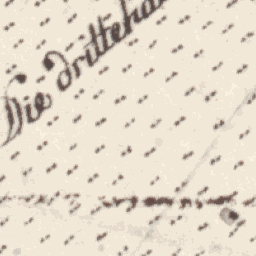 Die drittehal